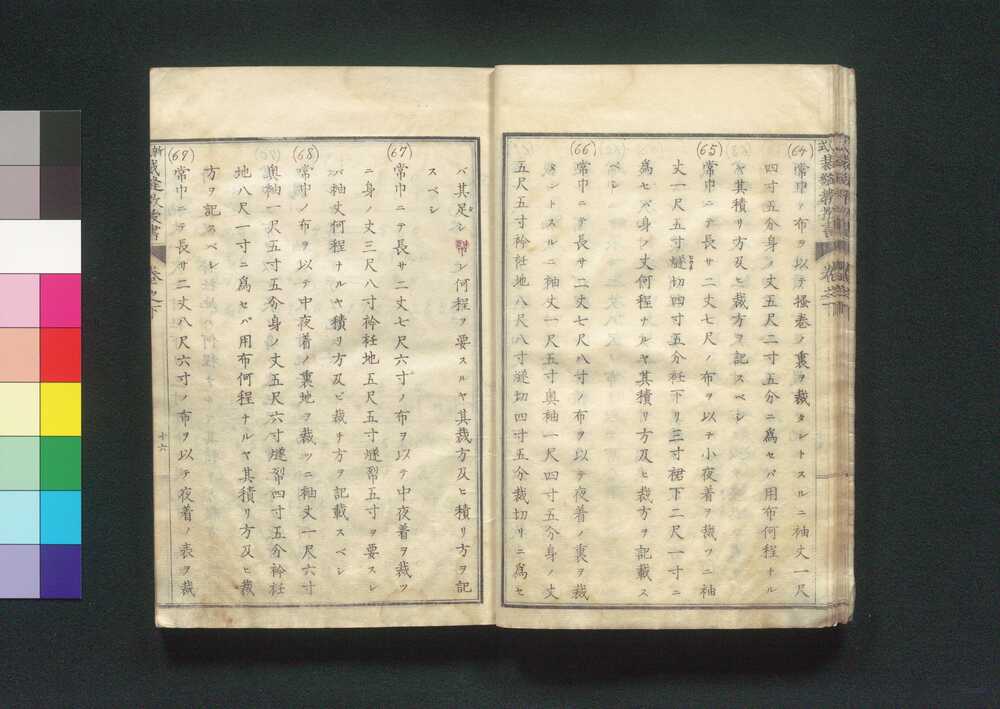 (64)
常巾ノ布ヲ以テ掻巻ノ裏ヲ裁タントスルニ袖丈一尺
四寸五分身ノ丈五尺二寸五分ニ爲セバ用布何程ナル
ヤ其積リ方及ヒ裁方ヲ記スベシ
(65)
常巾ニテ長サ二丈七尺ノ布ヲ以テ小夜着ヲ裁ツニ袖
丈一尺五寸燧切四寸五分衽下リ三寸裙下二尺一寸ニ
爲セバ身ノ丈何程ナルヤ其積リ方及ヒ裁方ヲ記載ス
ベシ
(66)
常巾ニテ長サ二丈七尺八寸ノ布ヲ以テ夜着ノ裏ヲ裁
タントスルニ袖丈一尺五寸奥袖一尺四寸五分身ノ丈
五尺五寸衿衽地八尺八寸燧切四寸五分裁切リニ爲セ
バ其足シ布何程ヲ要スルヤ其裁方及ヒ積リ方ヲ記
スベシ
(67)
常巾ニテ長サ二丈七尺六寸ノ布ヲ以テ中夜着ヲ裁ツ
ニ身ノ丈三尺八寸衿衽地五尺五寸燧裂五寸ヲ要スレ
バ袖丈何程ナルヤ積リ方及ビ裁チ方ヲ記載スベシ
(68)
常巾ノ布ヲ以テ中夜着ノ裏地ヲ裁ツニ袖丈一尺六寸
奥袖一尺五寸五分身ノ丈五尺六寸燧裂四寸五分衿衽
地八尺一寸ニ爲セバ用布何程ナルヤ其積リ方及ヒ裁
方ヲ記スベシ
(69)
常巾ニテ長サ二丈八尺六寸ノ布ヲ以テ夜着ノ表ヲ裁
十六